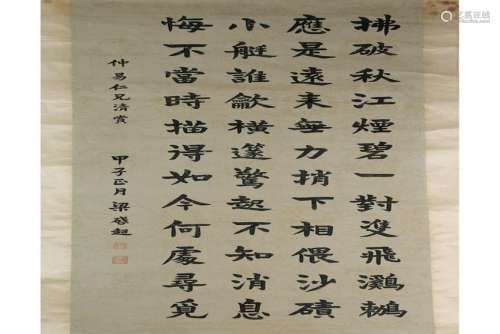 拂破秋江煙碧一對雙飛鸂鶒
應是遠來無力捎下相偎沙磧
小艇誰龡橫篴驚起不知消息
悔不當時描得如今何處尋覓
仲易仁兄清賞
甲子正月梁啟超